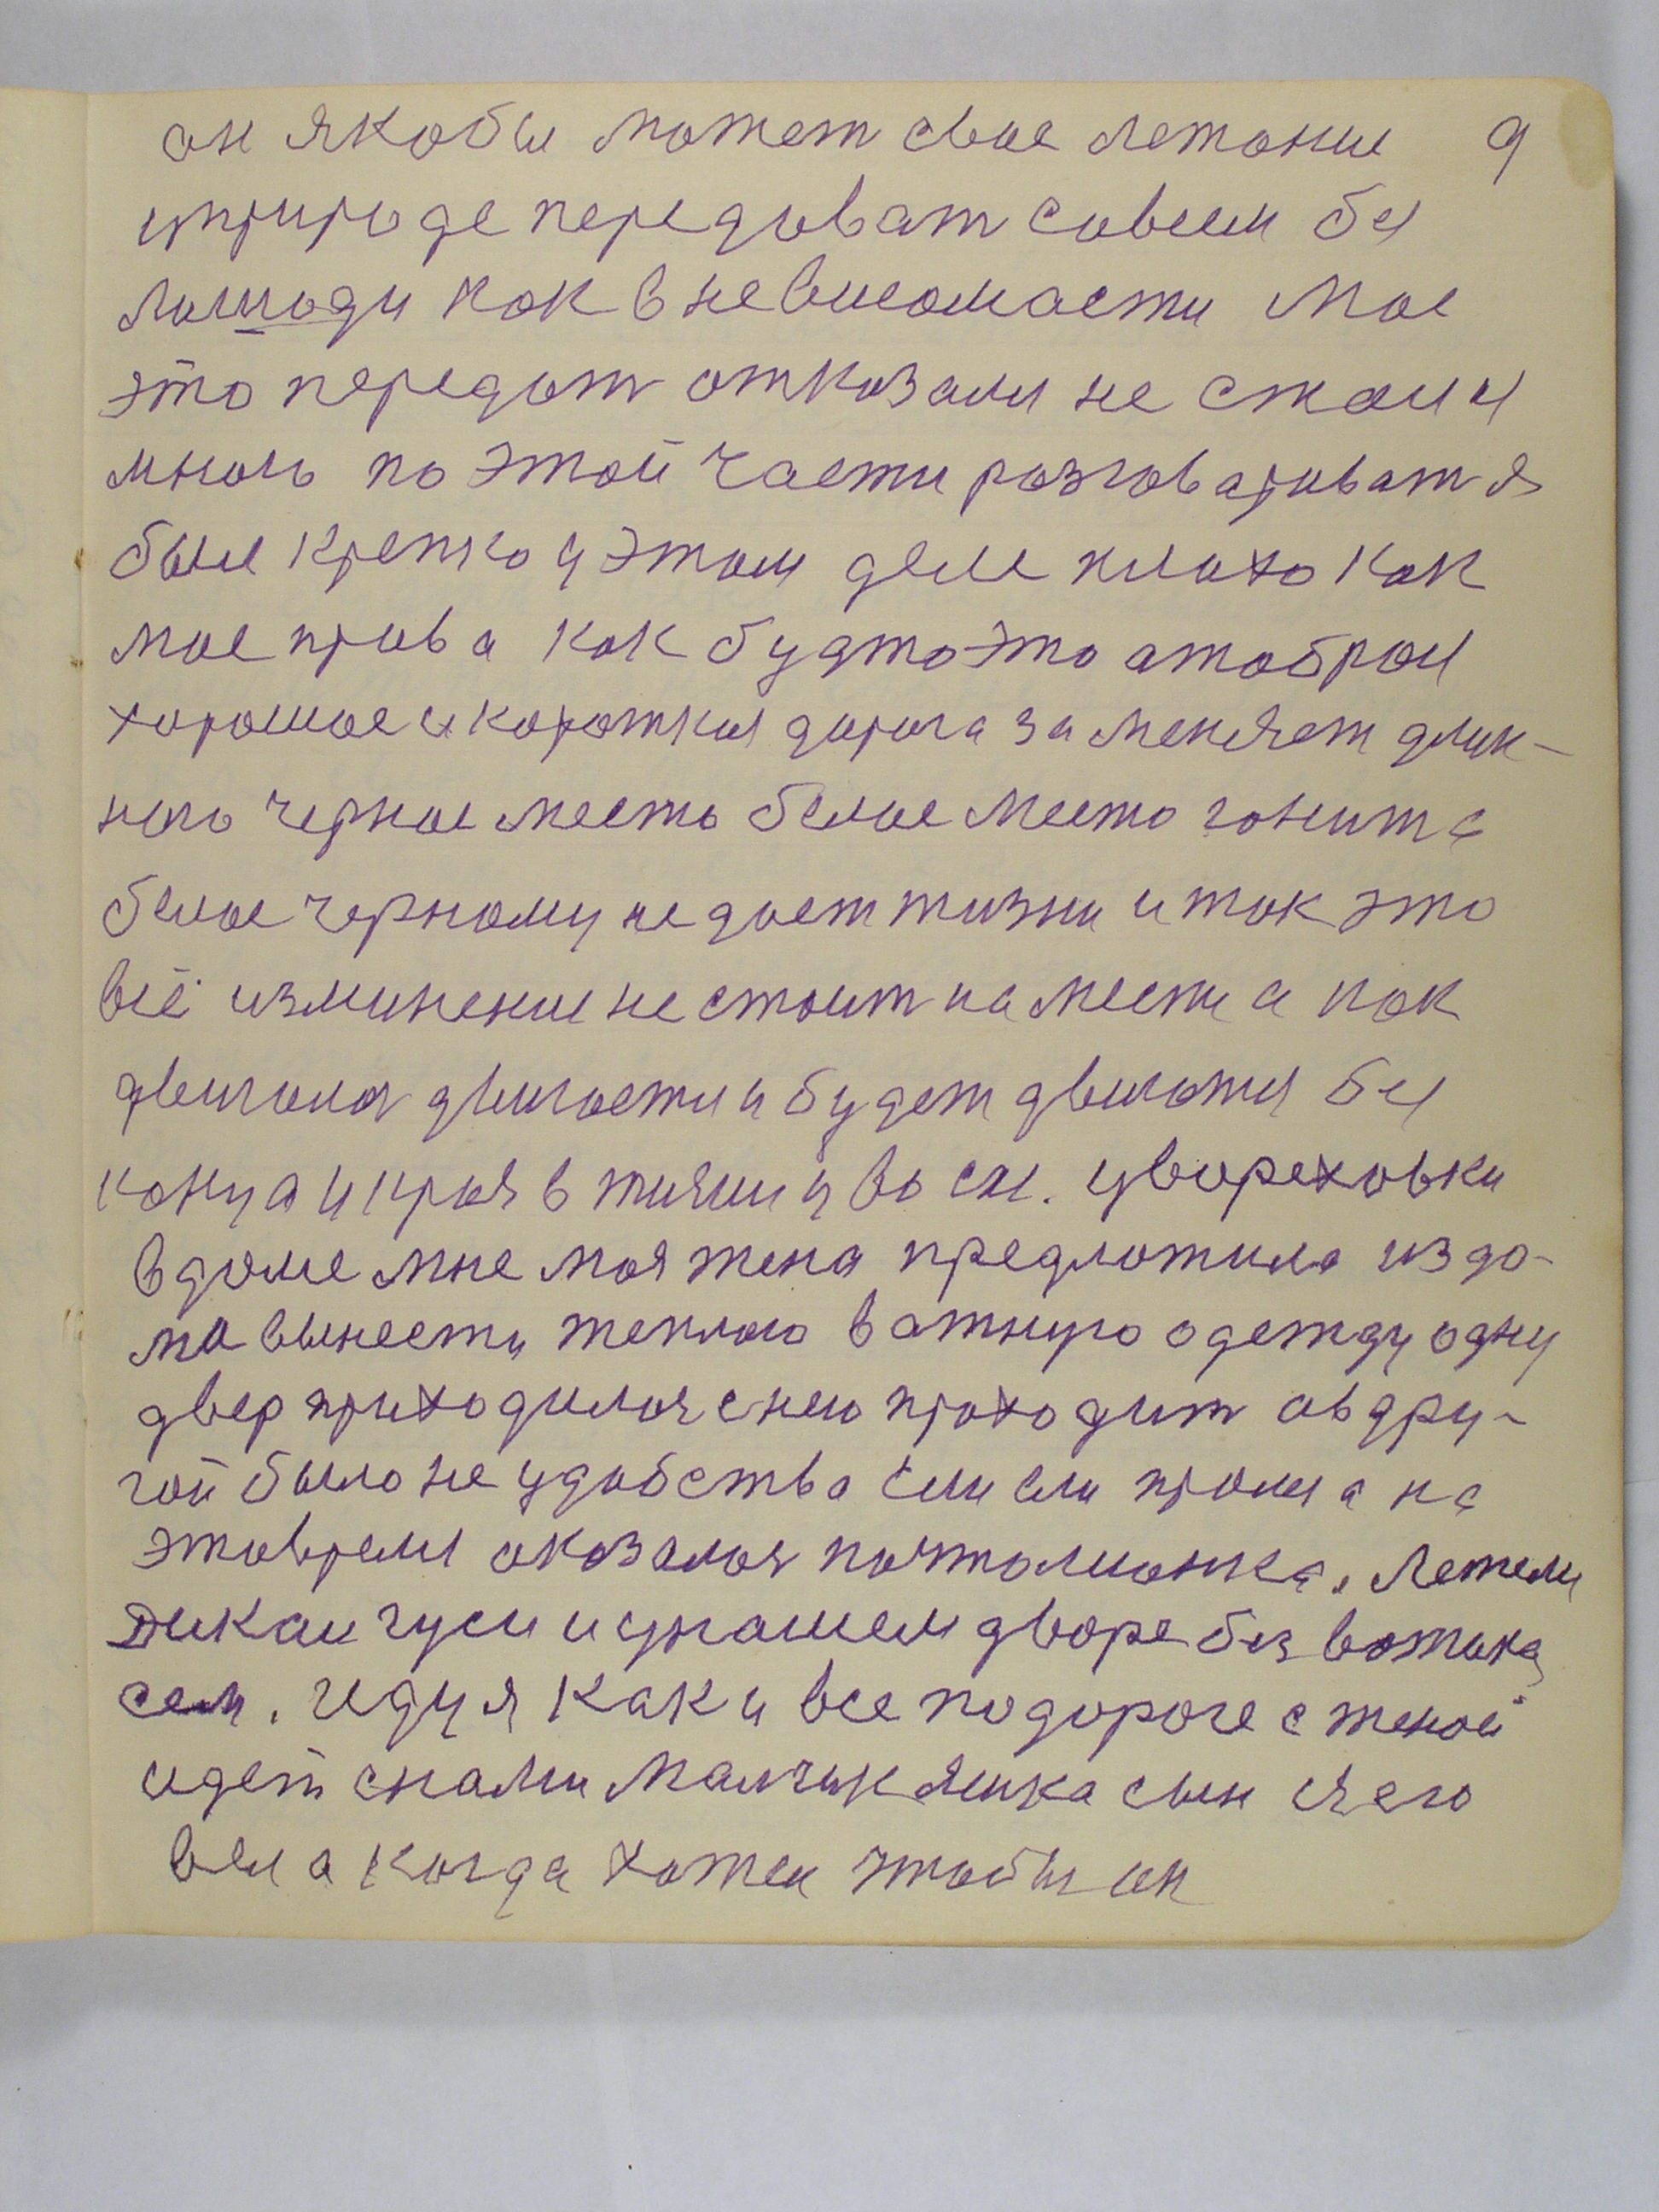 он якобы может свое летание 9
уприроде передоват совсем бы
лошоди как в невисомасти мое
это передат отказали не стали
мною по этой части разговариват я
был крепко у этом деле плохо как
мое права как будто это атобрали
хорошое и короткия дорога заменяет длин-
ного черное месть белое место гонит а
белое черному не дает жизни и ток это
всё изминение не стоит на мести а как
двигалося двигается и будет двигатся бес
конца и края в жизни у во сне. у Вореховки
в доме мне моя жена предложила из до-
ма вынести теплою ватнуюодежду одну
двер приходилося снею проходит а в дру-
гой было не удобства если прошла на
этовремя оказалося почтолионка. Летели
дикаи гуси и у нашем дворе без вожака
сели. Иду я как и все по дороге с женой
идет снами малчик яшка сын я его
вел а когда хотел чтобы он